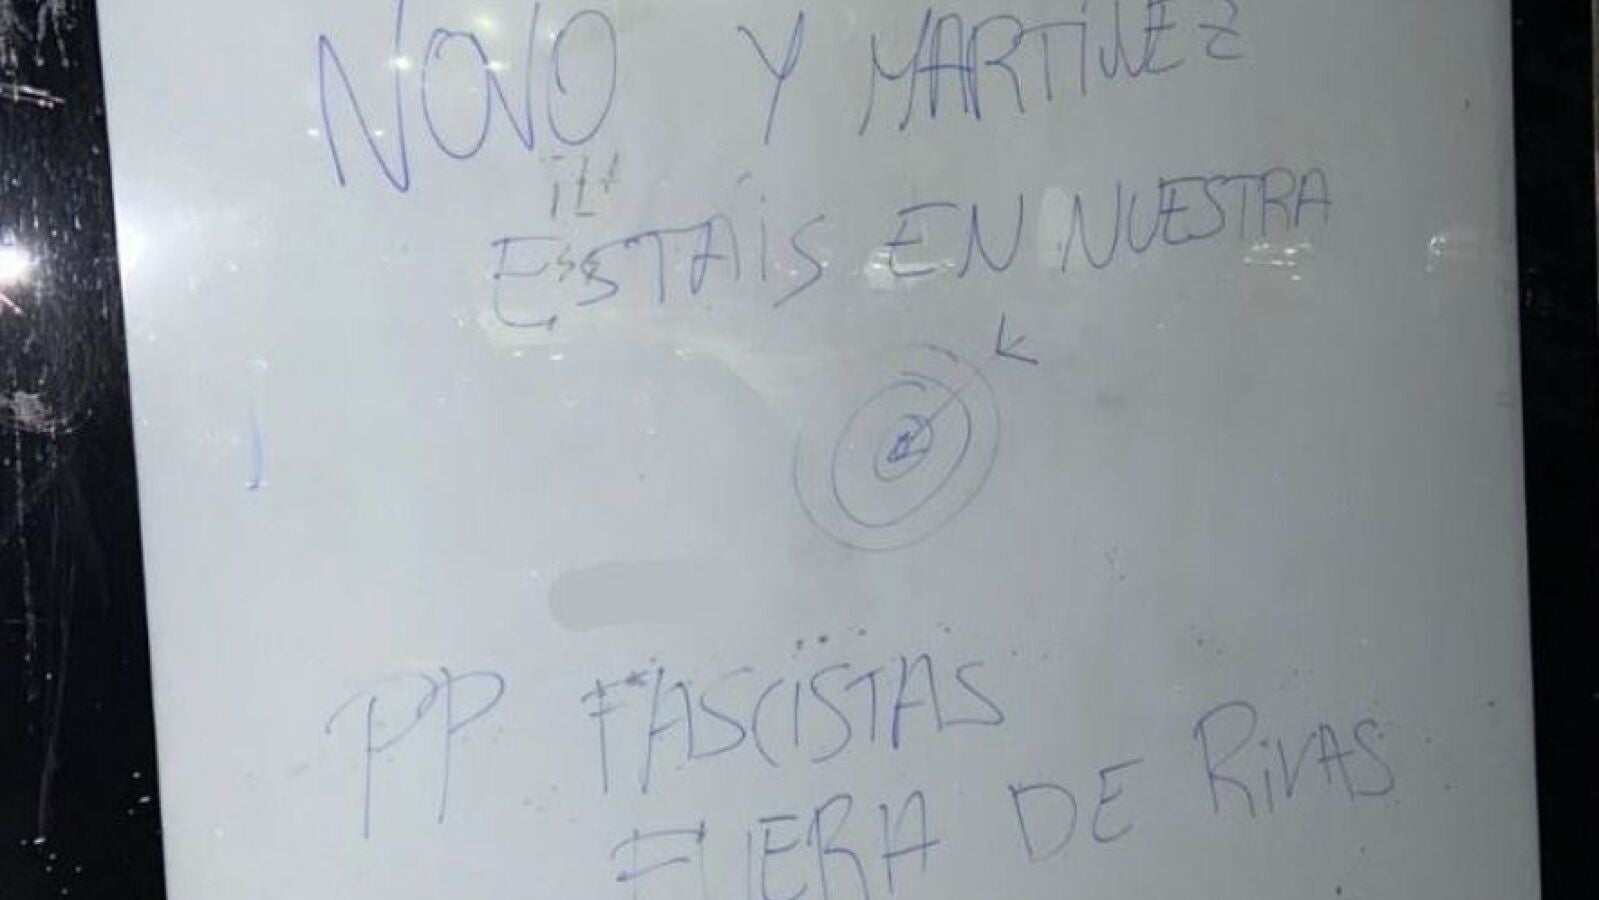 NOVO Y MARTÍNEZ
ESTAIS EN NUESTRA
PP FASCISTAS
FUERA DE RIVAS